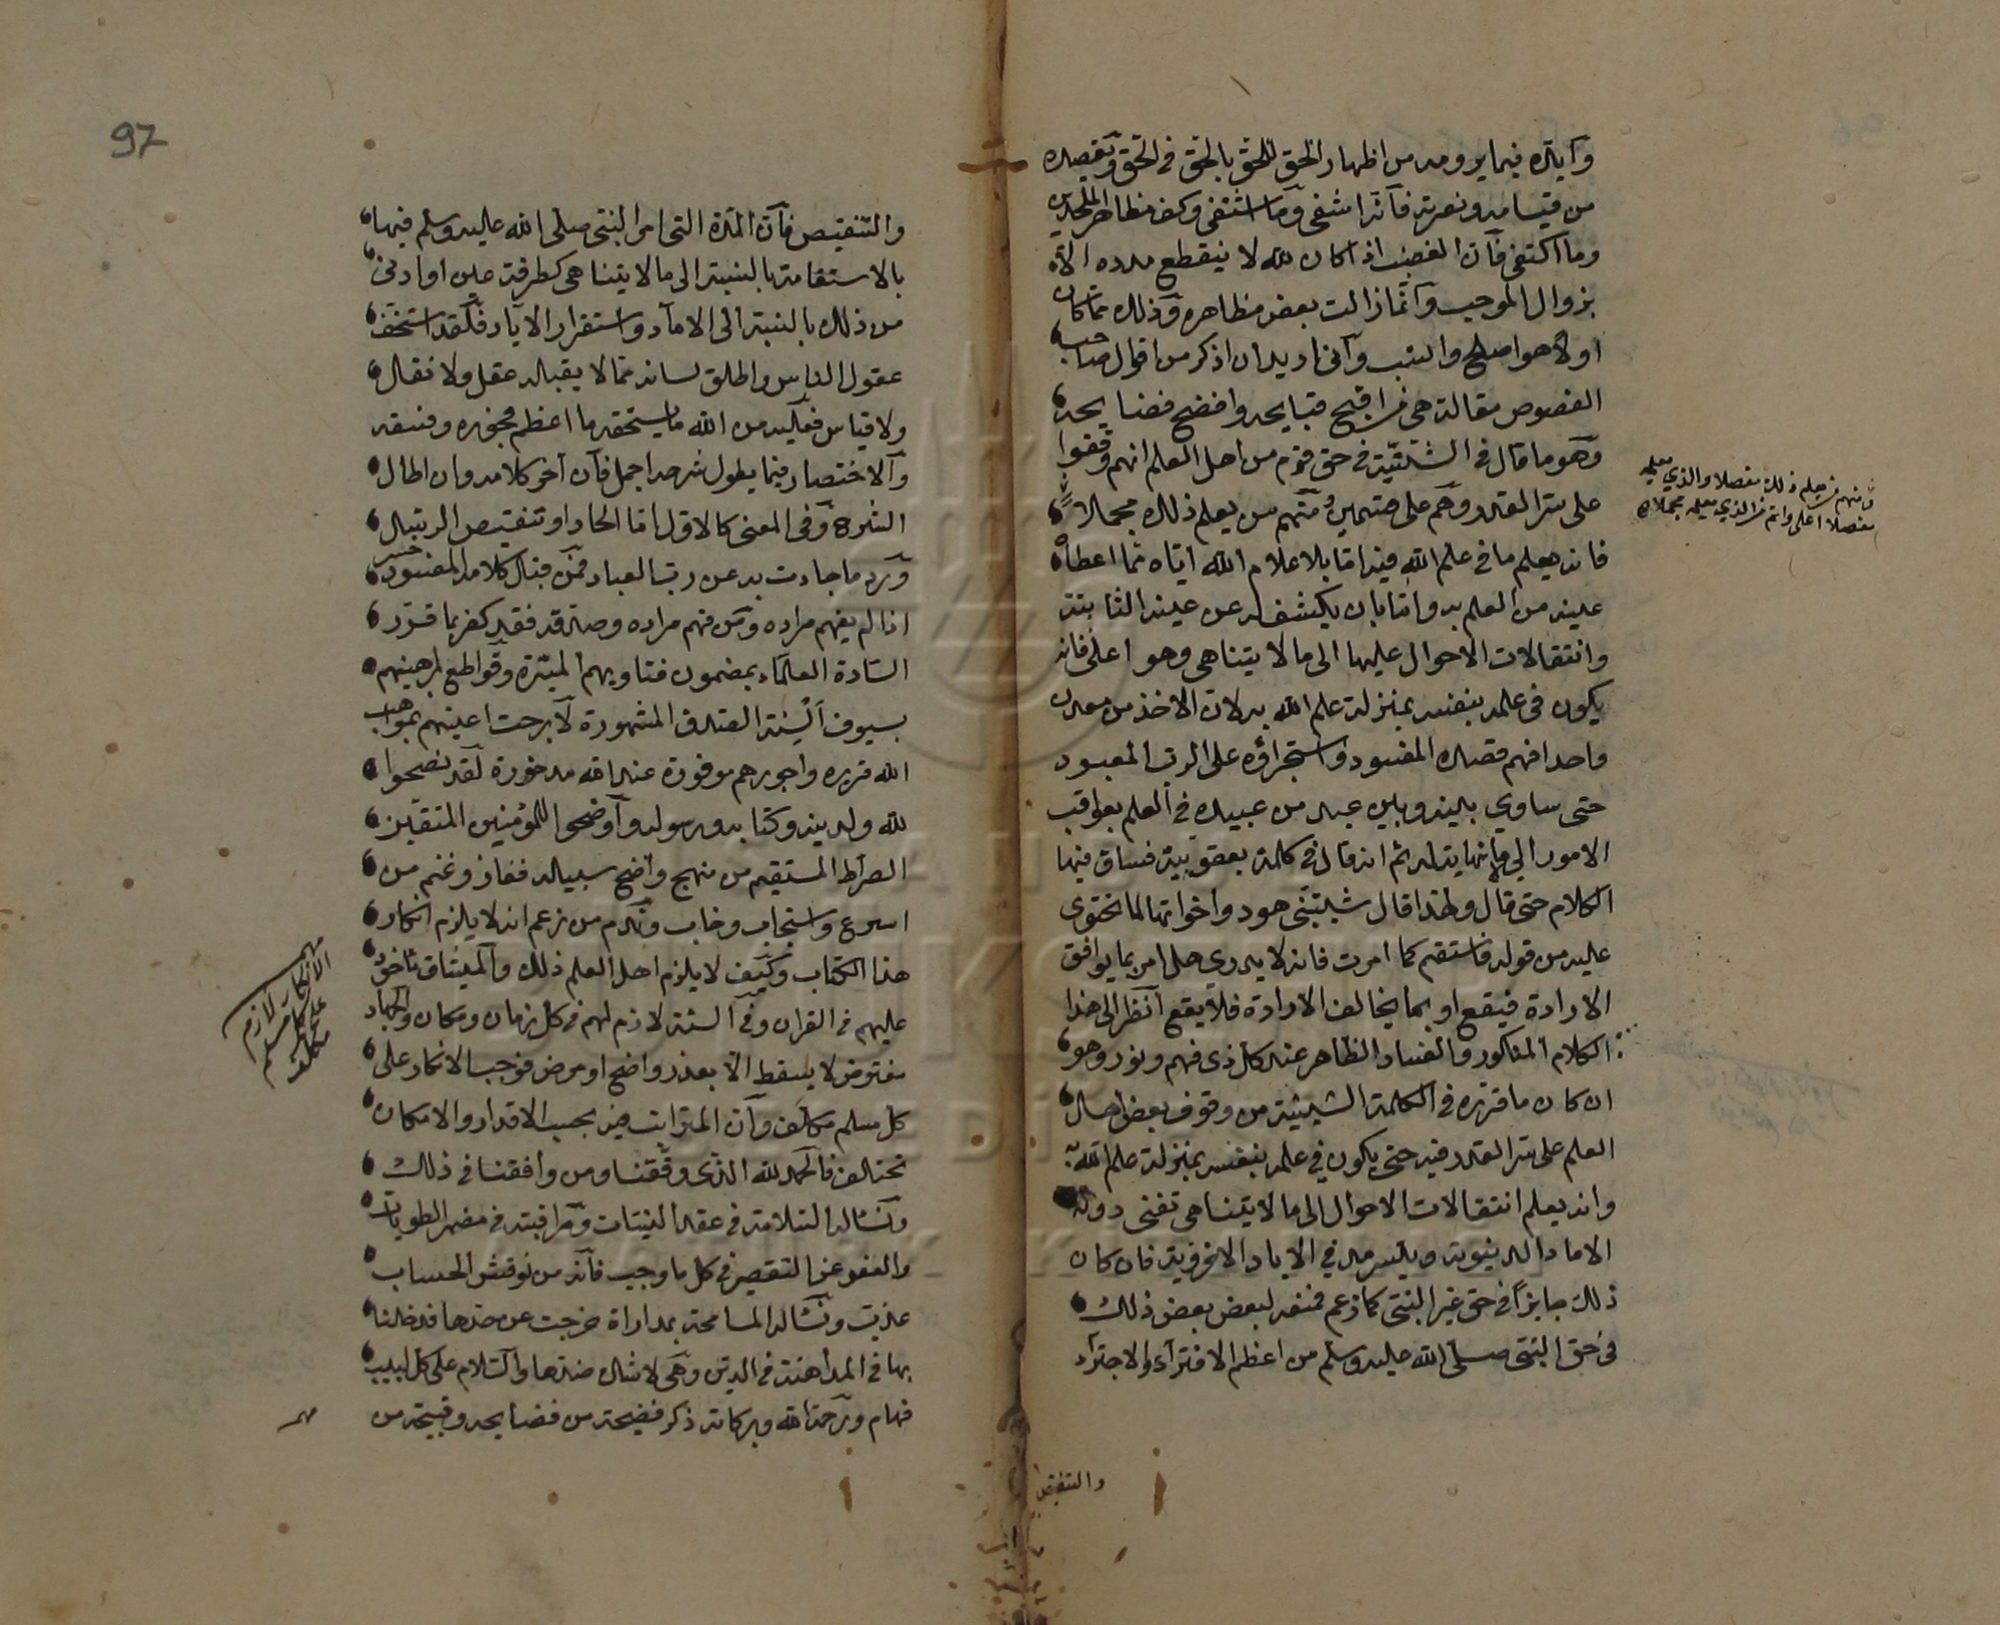 وأيده فيما يرومه من اظهار الحق للحق بالحق في الحق وتقصده
من قيامه ونصرته فانه اشفى وما اشتفى وكف مظاهر الملحدين
وما اكتفى فان الغضب اذا كان لله لا ينقطع مدده الا
بزوال الموجب وانما زالت بعض مظاهره وذلك مما كان
اولا هو اصلح وانسب واني اريد ان اذكر من اقوال صاحب
الفصوص مقالة هي من اقبح قبايحه وافضح فضايحه
وهو ما قال في الشيثية في حق قوم من اهل العلم انهم وقفوا
على سر القدر وهم على قسمين منهم من يعلم ذلك مجملا
ومنهم من يعلم ذلك مفصلا والذي يعلمه
مفصلا اعلى واتم من الذي يعلمه مجملا
فانه يعلم ما في علم الله فيه اما باعلام الله اياه بما اعطاه
عينه من العلم به واما بان يكشف له عن عينه الثابتة
وانتقالات الاحوال عليها الى ما لا يتناهى وهو اعلى فانه
يكون في علمه بنفسه بمنزلة علم الله به لان الاخذ من معدن
واحد افهم قصده المفسود واستجراؤه على الرب المعبود
حتى ساوى بينه وبين عبد من عبيده في العلم بعواقب
الامور الى ما لا نهاية له ثم انه قال في كلمة يعقوبية فساق فيها
الكلام حتى قال ولهذا قال شيبتني هود واخواتها لما تحتوي
عليه من قوله فاستقم كما امرت فانه لا يدري هل امر بما يوافق
الارادة فيقع او بما يخالف الارادة فلا يقع انظر الى هذا
الكلام المنكور والفساد الظاهر عند كل ذي فهم ونور وهو
ان كان ما قرره في الكلمة الشيثية من وقوف بعض اهل
العلم على سر القدر فيه حتى يكون في علمه بنفسه بمنزلة علم الله
وانه يعلم انتقالات الاحوال الى ما لا يتناهى تفنى دونه
الاماد الدنيوية ويتسرمد في الاباد الاخروية فان كان
ذلك جايزا في حق غير النبي كما زعم فمنعه لبعض بعض ذلك
في حق النبي صلى الله عليه وسلم من اعظم الافتراء والاجتراء
والتنقيص
97
والتنقيص فان المدة التي امر النبي صلى الله عليه وسلم فيها
بالاستقامة بالنسبة الى ما لا يتناهى كطرفة عين او ادنى
من ذلك بالنسبة الى الاماد واستقرار الاباد فلقد استخف
عقول الناس واطلق لسانه بما لا يقبله عقل ولا نقل
ولا قياس فعليه من الله ما يستحقه ما اعظم فجوره وفسقه
والاختصار فيما يطول شرحه اجمل فان اخر كلامه وان اطال
الشرح وفي المعنى كالاول اما الحاد او تنقيص الرسل
ورد ما جاءت به عن رب العباد فمن قبل كلامه المفسود خسر
اذا لم يفهم مراده ومن فهم مراده وصدقه فقد كفر بما قرر
السادة العلماء بمضمون فتاويهم الميسرة وقواطع براهينهم
بسيوف السنة الصدق المشهورة لا برحت اعينهم بمواهب
الله قريرة واجورهم موفورة عند الله مدخورة لقد نصحوا
لله ولدينه وكتابه ورسوله واوضحوا للمؤمنين المتقين
الصراط المستقيم من منهج واضح سبيله ففاز وغنم من
اسرع واستجاب وخاب وندم من زعم انه لا يلزم انكار
هذا الكتاب وكيف لا يلزم اهل العلم ذلك والميثاق ماخوذ
عليهم في القران وفي السنة لازم لهم في كل زمان ومكان والجهاد
مفترض لا يسقط الا بعذر واضح او مرض فوجب الانكار على
كل مسلم مكلف وان المراتب فيه بحسب الاقدار والامكان
تختلف فالحمد لله الذي وفقنا ومن وافقنا في ذلك
ونسأله السلامة في عقد النيات ومراقبته في مضمر الطويات
والعفو عن التقصير في كل ما وجب فانه من نوقش الحساب
عذب ونسأله المسامحة بمداراة خرجت عن حدها فدخلنا
بها في المداهنة في الدين وهي لا شك ضدها والسلام على كل لبيب
فهام ورحمة الله وبركاته ذكر فضيحة من فضايحه وقبيحة من
مهم
الانكار لازم
على كل مسلم
مكلف
مهم